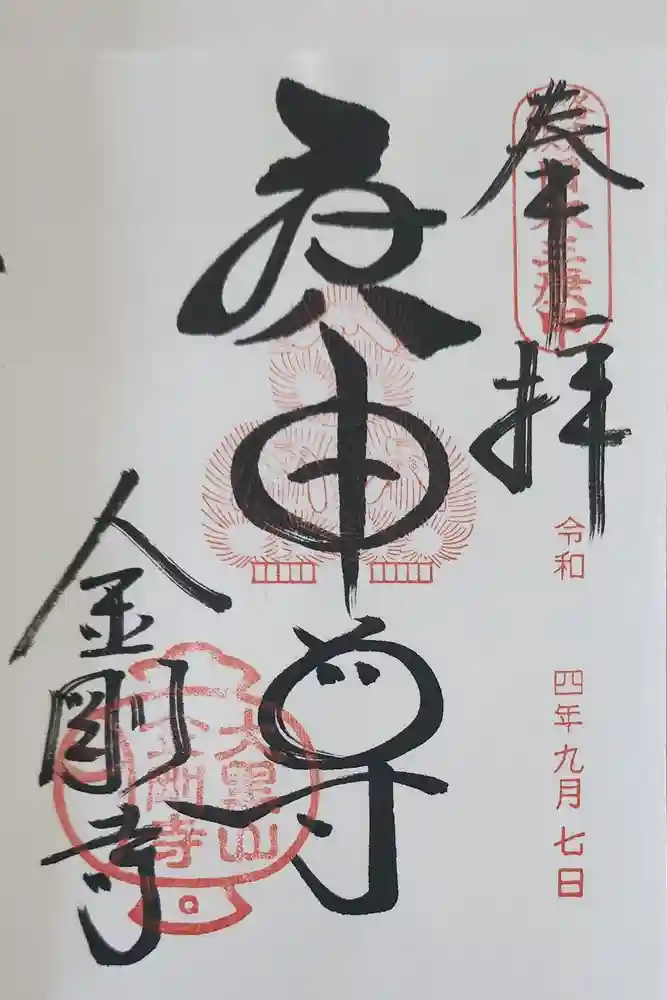 奉拝
令和 四年九月七日
庚申尊
金剛寺
大黒山
金剛寺